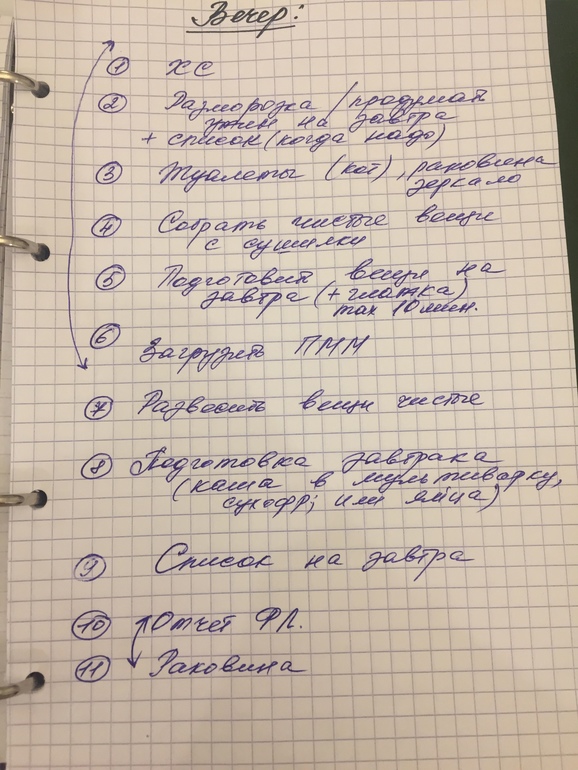 Вечер:
1 ХС
2 Разморозка / продумат
ужин на завтра
+ список (когда надо)
3 Туалеты (кот), раковина
зеркало
4 Собрать чистые вещи
с сушилки
5 Подготовит вещи на
завтра (+ глажка)
max 10 мин.
6
Загрузить ПММ
7 Развесить вещи чистые
8 Подготовка завтрака
(каша в мультиварку,
сухофр; или яйца)
9 Список на завтра
10 Отчет ФЛ.
11 Раковина